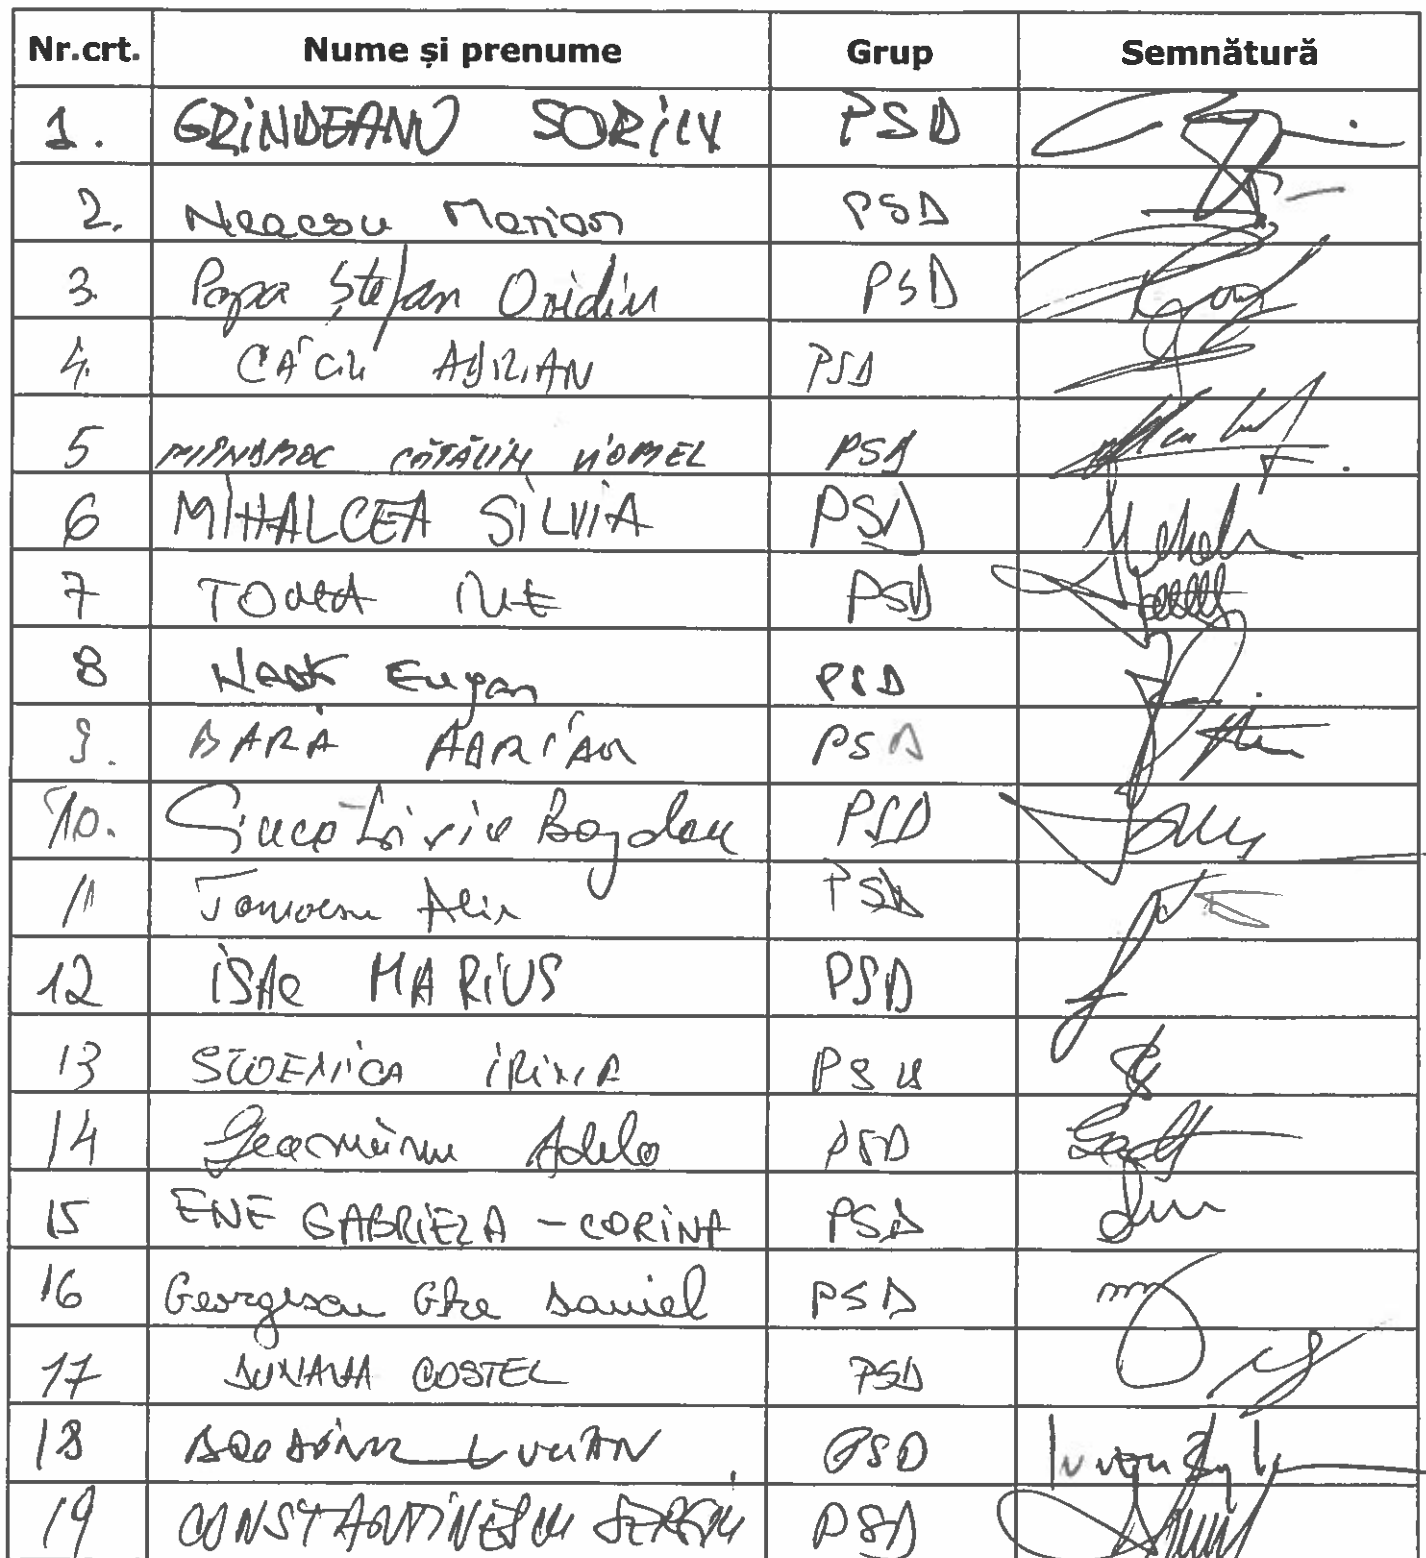 Nr.crt. Nume și prenume Grup Semnătură
1. GRINDEANU SORIN PSD
2. Neacsu Marian PSD
3. Popa Ștefan Ovidiu PSD
4. CÂCIU ADRIAN PSD
5 CĂTĂLIN VIOREL PSD
6 MIHALCEA SILVIA PSD
7 TOMA ILIE PSD
8 Neata Eugen PSD
9. BARA ADRIAN PSD
10. Bogdan PSD
11 Alin PSD
12 ISAC MARIUS PSD
13 STOENICA IRINA PSD
14 Adela PSD
15 ENE GABRIELA - CORINA PSD
16 Georgescu Ghe Daniel PSD
17 DUNAVA COSTEL PSD
18 LUCIAN PSD
19 CONSTANTINESCU SERGIU PSD